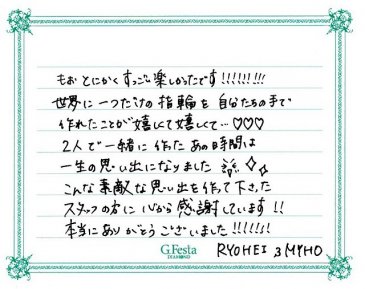 もおとにかくすっごい楽しかったです!!!!!!!!!
世界に一つだけの指輪を自分たちの手で
作れたことが嬉しくて嬉しくて…♡♡♡
2人で一緒に作ったあの時間は
一生の思い出になりました
こんな素敵な思い出を作って下さった
スタッフの方に心から感謝しています!!
本当にありがとうございました!!!!!!!
G.Festa
DIAMOND
RYOHEI 3 MIHO